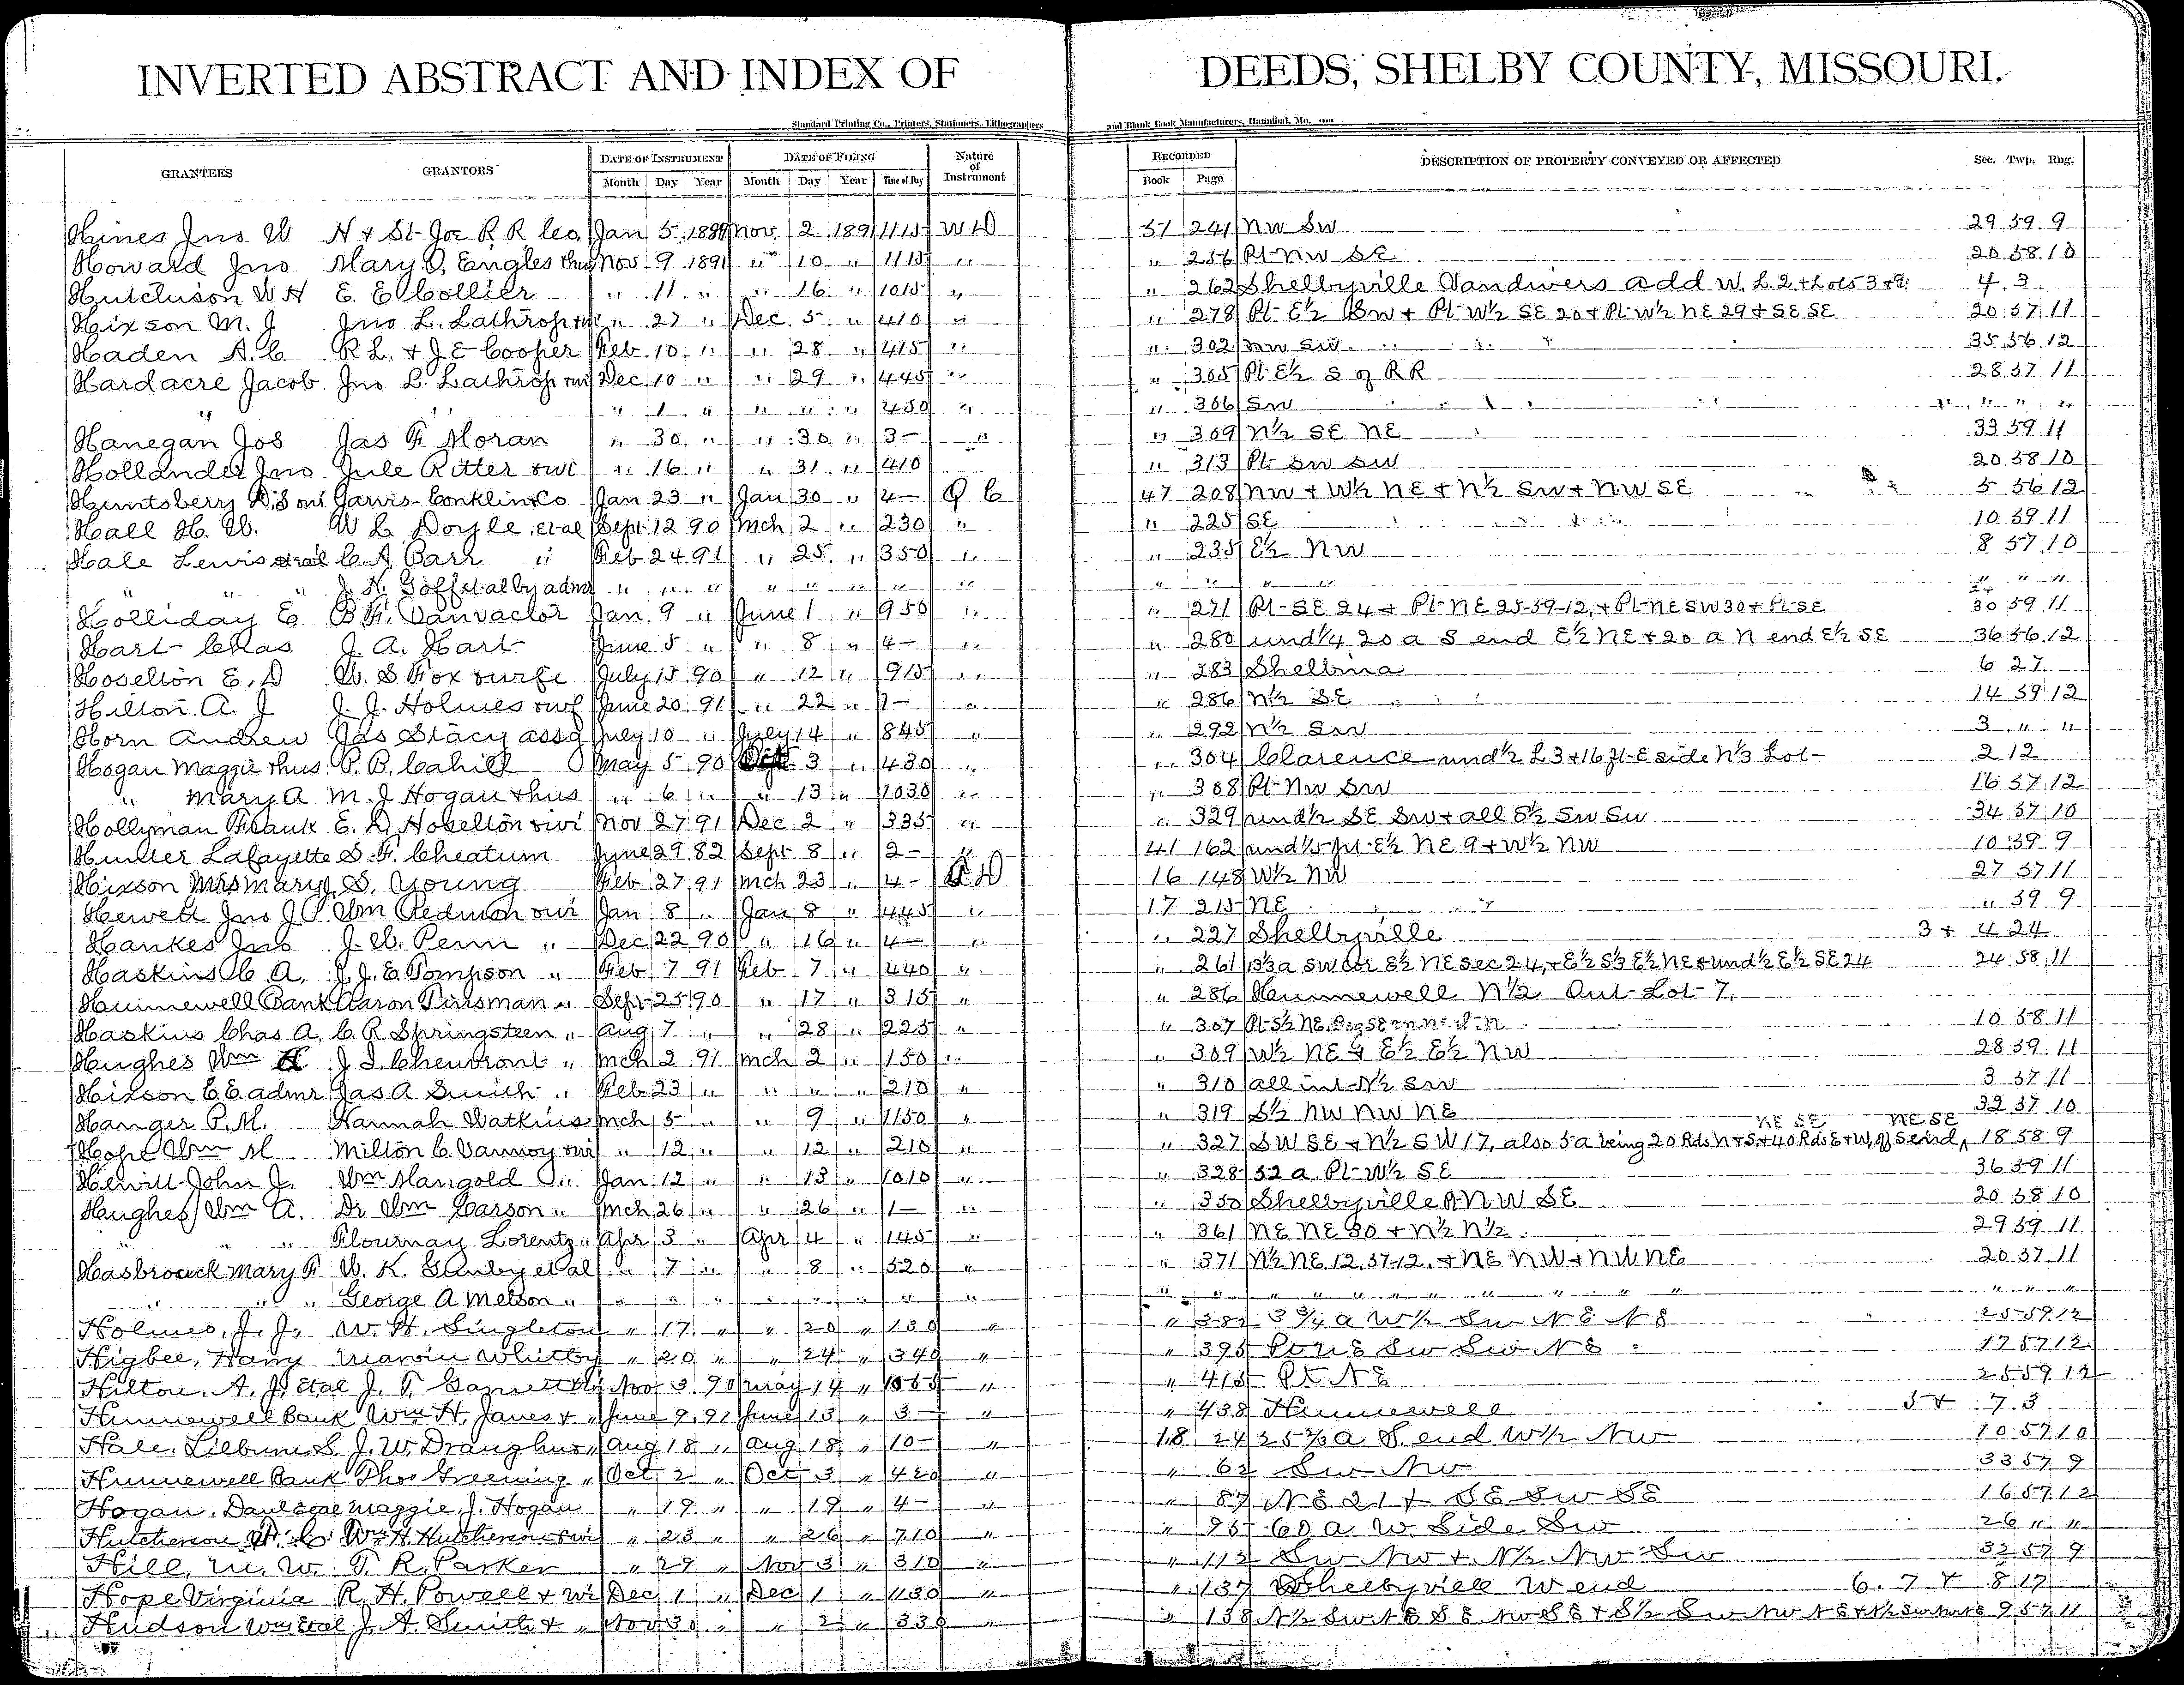 INVERTED ABSTRACT AND INDEX OF DEEDS, SHELBY COUNTY, MISSOURI.
Standard Printing Co., Printers, Stationers, Lithographers and Blank Book Manufacturers, Hannibal, Mo.
GRANTEES GRANTORS DATE OF INSTRUMENT DATE OF FILING Nature of Instrument RECORDED DESCRIPTION OF PROPERTY CONVEYED OR AFFECTED Sec. Twp. Rng.
Month Day Year Month Day Year Time of Day Book Page
Hines Jno W H & St Joe R R Co. Jan 5 1889 Nov. 2 1891 1115 W D 51 241 NW SW 29 59 9
Howard Jno Mary O. Eangles thus Nov 9 1891 " 10 " 1115 " " 256 Pt NW SE 20 58 10
Hutchison W H E. E. Collier " 11 " " 16 " 1015 " " 262 Shelbyville Vandivers add W. L. 2 + Lots 3 + 9 4 3
Hixson M. J Jno L. Lathrop " 27 " Dec. 5 " 410 " " 278 Pt E½ SW + Pt W½ SE 20 + Pt W½ NE 29 + SE SE 20 57 11
Haden A. C R L. + J E Cooper Feb 10 " " 28 " 415 " " 302 NW SW 35 56 12
Hardacre Jacob Jno L. Lathrop Dec 10 " " 29 " 445 " " 305 Pt E½ S of RR 28 57 11
" " " 1 " " " " 450 " " 306 SW " " "
Hanegan Jos Jas F. Moran " 30 " " 30 " 3- " " 309 N½ SE NE 33 59 11
Hollander Jno Jule Ritter " 16 " " 31 " 410 " 313 Pt SW SW 20 58 10
Huntsberry Jarvis-Conklin + Co Jan 23 " Jan 30 " 4- Q C 47 208 NW + W½ NE + N½ SW + NW SE 5 56 12
Hall H. W. W L Doyle, et al Sept 12 90 Mch 2 " 230 " " 225 SE 10 59 11
Hale Lewis et al C. A. Barr " Feb 24 91 " 25 " 350 " " 235 E½ NW 8 57 10
" " J. H. Goff et al by admr " " " " " " " " " " " " " "
Holliday E B. F. Vanvactor Jan 9 " June 1 " 950 " " 271 Pt SE 24 + Pt NE 25-59-12, + Pt NE SW 30 + Pt SE 30 59 11
Hart Chas J. A. Hart June 5 " " 8 " 4- " " 280 und ¼ 20 a S end E½ NE + 20 a N end E½ SE 36 56 12
Hoselton E. D W. S Fox + wife July 15 90 " 12 " 915 " " 283 Shelbina 6 27
Hilton A. J J. J. Holmes June 20 91 " 22 " 1- " " 286 N½ SE 14 59 12
Horn Andrew Jas Stacy assg July 10 " July 14 " 845 " " 292 N½ SW 3 " "
Hogan Maggie + hus P. B. Cahill May 5 90 3 " 430 " " 304 Clarence und ½ L 3 + 16 ft E side N⅓ Lot 2 12
" Mary A M. J Hogan + hus " 6 " " 13 " 1030 " " 308 Pt NW SW 16 57 12
Hollyman Frank E. D Hoselton Nov 27 91 Dec 2 " 335 " " 329 und ½ SE SW + all S½ SW SW 34 57 10
Hunter Lafayette S. F. Cheatum June 29 82 Sept 8 " 2- " 41 162 und ⅕ pt E½ NE 9 + W½ NW 10 59 9
Hixson Mrs Mary J. S. Young Feb 27 91 Mch 23 " 4- 16 148 W½ NW 27 57 11
Hewett Jno J Wm Redmon Jan 8 " Jan 8 " 445 " 17 215 NE " 59 9
Hankes Jno J. W. Penn " Dec 22 90 " 16 " 4- " " 227 Shelbyville 3 + 4 24
Haskins C. A. J. E. Tompson " Feb 7 91 Feb 7 " 440 " " 261 13⅓ a SW cor E½ NE Sec 24, + E½ S⅓ E½ NE + und ½ E½ SE 24 24 58 11
Hunnewell Bank Aaron Tinsman " Sept 25 90 " 17 " 315 " " 286 Hunnewell N½ Out Lot 7.
Haskins Chas A. C. R. Springsteen " Aug 7 " " 28 " 225 " " 307 Pt S½ NE, 10 58 11
Hughes Wm J S. Cheuvront " Mch 2 91 Mch 2 " 150 " " 309 W½ NE + E½ E½ NW 28 59 11
Hixson E E admr Jas A Smith " Feb 23 " " " " 210 " " 310 all int N½ SW 3 57 11
Hanger P. M. Hannah Watkins Mch 5 " " 9 " 1150 " " 319 S½ NW NW NE 32 57 10
NE SE NE SE
Hope Wm M Milton C. Vannoy " 12 " " 12 " 210 " " 327 SW SE + N½ SW 17, also 5 a being 20 Rds N + S + 40 Rds E + W, off S end 18 58 9
Hewitt John J. Wm Mangold " Jan 12 " " 13 " 1010 " " 328 52 a. Pt W½ SE 36 59 11
Hughes Wm A. Dr Wm Carson " Mch 26 " " 26 " 1- " " 350 Shelbyville NW SE 20 58 10
" " " Flournay Lorentz " Apr 3 " Apr 4 " 145 " " 361 NE NE 30 + N½ N½ 29 59 11
Hasbrouck Mary F W. K. et al " 7 " " 8 " 520 " " 371 N½ NE, 12, 57-12, + NE NW + NW NE 20 57 11
" " " George A Melson " " " " " " " " " " " " " " " "
Holmes, J. J. W. H. Singleton " 17 " " 20 " 130 " " 382 3¾ a W½ SW NE NE 25 59 12
Higbee, Harry Marvin Whitby " 20 " " 24 " 340 " " 395 SW SW NE 17 57 12
Hilton, A. J. Etal J. T. Nov 3 90 May 14 " 1055 " " 415 Pt NE 25 59 12
Hunnewell Bank Wm H. Janes + " June 9 91 June 13 " 3- " " 438 Hunnewell 5 + 7.3
Hale, Lilburn S. J. W. Draughn " Aug 18 " Aug 18 " 10- " 18 24 25⅔ a S. end W½ NW 10 57 10
Hunnewell Bank Thos Greening " Oct 2 " Oct 3 " 420 " " 62 SW NW 33 57 9
Hogan, Dan et al Maggie J. Hogan " 19 " " 19 " 4- " " 87 NE 21 + SE SW SE 16 57 12
Hutcherson Wm H Hutcherson " 23 " " 26 " 710 " " 95 60 a W. Side SW 26 " "
Hill, M. W. T. R. Parker " 29 " Nov 3 " 310 " " 112 SW NW + N½ NW SW 32 57 9
Hope Virginia R. H. Powell + wi Dec 1 " Dec 1 " 1130 " " 137 Shelbyville W end 6. 7 + 8 17
Hudson Wm et al J. A. Smith + " Nov 30 " " 2 " 330 " " 138 N½ SW NE SE NW SE + S½ SW NW NE + N½ SW NW NE 9 57 11